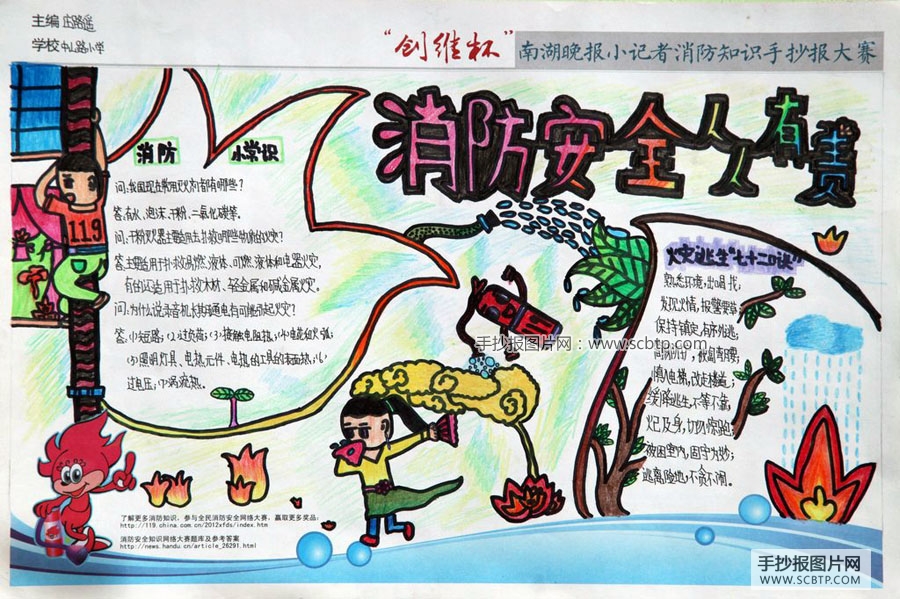 主编 庄路遥
学校 中山路小学
“创维杯”
南湖晚报小记者消防知识手抄报大赛
消防安全人人有责
消防 小常识
问:我国现在常用灭火剂都有哪些?
答:有水、泡沫、干粉、二氧化碳等。
问:干粉灭火器主要适用去扑救哪些物质的火灾?
答:主要适用于扑救易燃液体、可燃液体和电器火灾,
有的还适用于扑救木材、轻金属和碱金属火灾。
问:为什么说录音机长期通电有可能引起火灾?
答:(1)短路;(2)过负荷;(3)接触电阻热;(4)电荒和火弧;
(5)照明灯具、电热元件、电热的工具的表面热;(6)
过电压;(7)涡流热。
119
火灾逃生“七十二口诀”
熟悉环境,出口易找;
发现火情,报警要早;
保持镇定,有序外逃;
慎入电梯,改走楼道;
缓降逃生,不等不靠;
火已及身,切勿惊跑;
被困室内,固守为妙;
逃离险地,不贪不闹。
手抄报图片网:www.scbtp.com
了解更多消防知识,参与全民消防安全网络大赛,赢取更多奖品:
http://119.china.com.cn/2012xfds/index.htm
消防安全知识网络大赛题库及参考答案
http://news.handu.cn/article_26291.html
手抄报图片网
WWW.SCBTP.COM